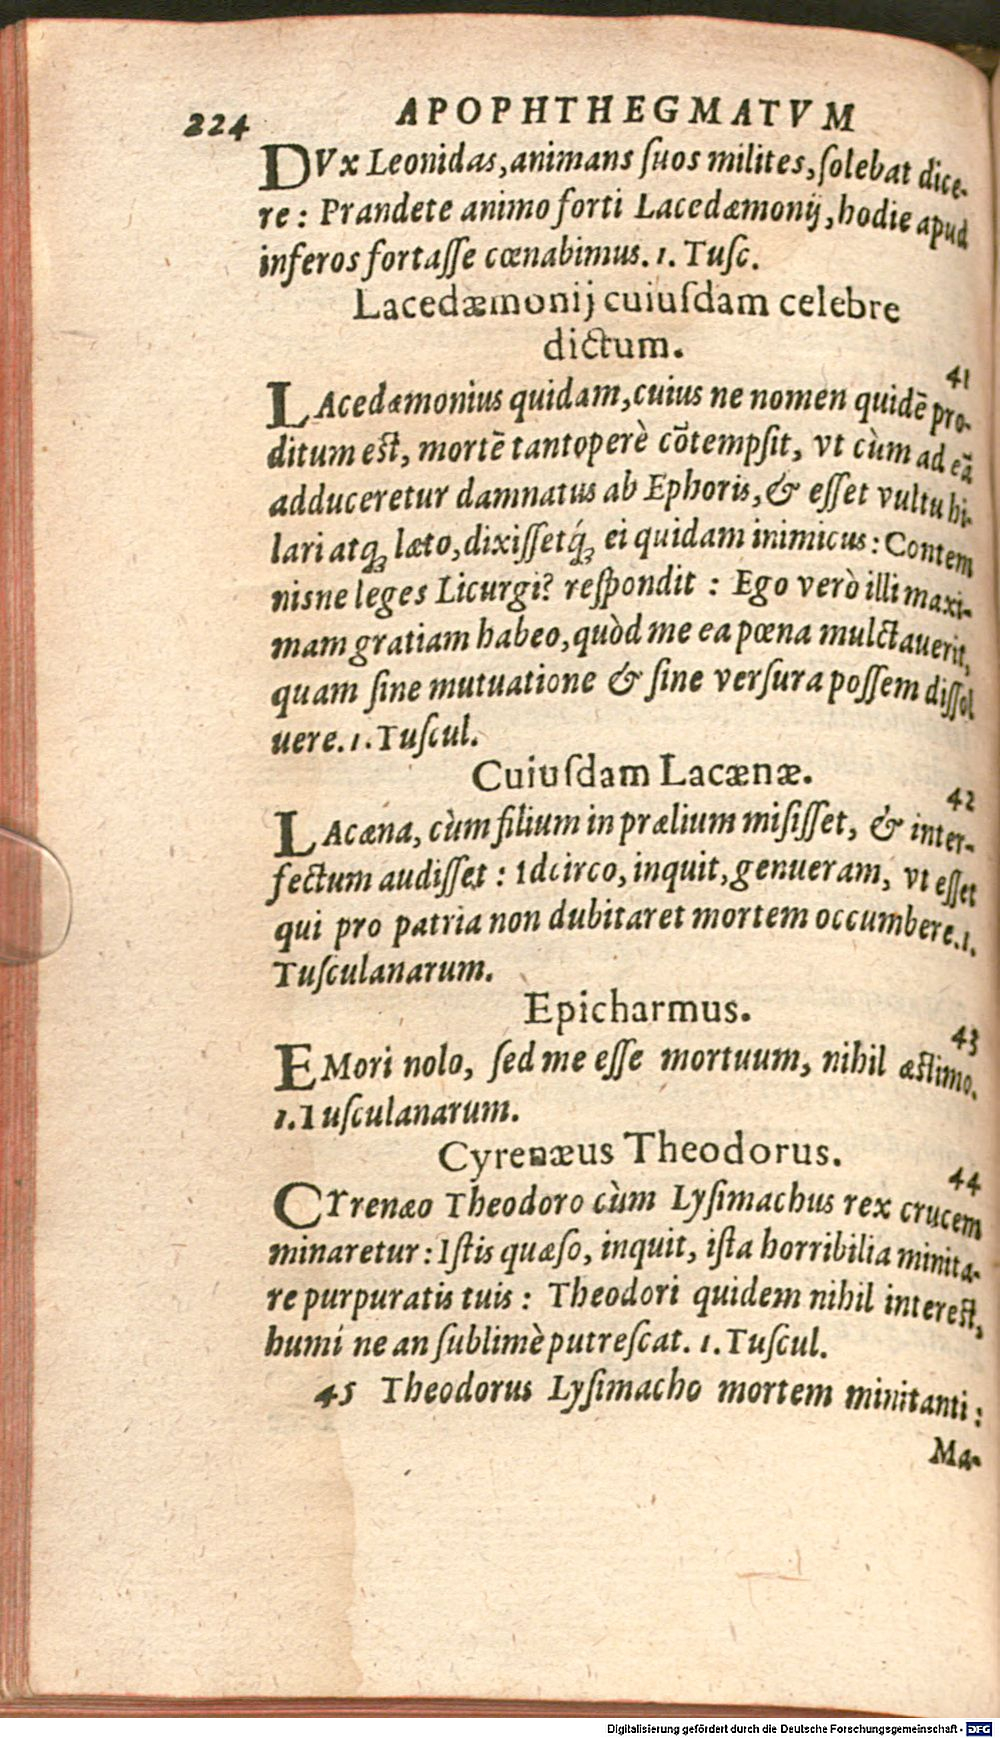 224 APOPHTHEGMATVM
DVx Leonidas, animans ſuos milites, ſolebat dice-
re: Prandete animo forti Lacedæmonij, hodie apud
inferos fortaſſe cœnabimus. 1. Tuſc.
Lacedæmonij cuiuſdam celebre
dictum.
41
LAcedæmonius quidam, cuius ne nomen quidē pro-
ditum eſt, mortē tantoperè cōtempſit, vt cùm ad eā
adduceretur damnatus ab Ephoris, & eſſet vultu hi-
lari atq; læto, dixiſſetq́; ei quidam inimicus: Contem
nisne leges Licurgi? reſpondit: Ego verò illi maxi-
mam gratiam habeo, quòd me ea pœna mulctauerit,
quam ſine mutuatione & ſine verſura poſſem diſſol
uere. 1. Tuſcul.
Cuiuſdam Lacænæ.
42
LAcæna, cùm filium in prælium miſiſſet, & inter-
fectum audiſſet: Idcirco, inquit, genueram, vt eſſet
qui pro patria non dubitaret mortem occumbere. 1.
Tuſculanarum.
Epicharmus.
43
EMori nolo, ſed me eſſe mortuum, nihil æſtimo.
1. Tuſculanarum.
Cyrenæus Theodorus.
44
CYrenæo Theodoro cùm Lyſimachus rex crucem
minaretur: Iſtis quæſo, inquit, iſta horribilia minita-
re purpuratis tuis: Theodori quidem nihil intereſt,
humi ne an ſublimè putreſcat. 1. Tuſcul.
45 Theodorus Lyſimacho mortem minitanti:
Ma-
Digitalisierung gefördert durch die Deutsche Forschungsgemeinschaft - DFG